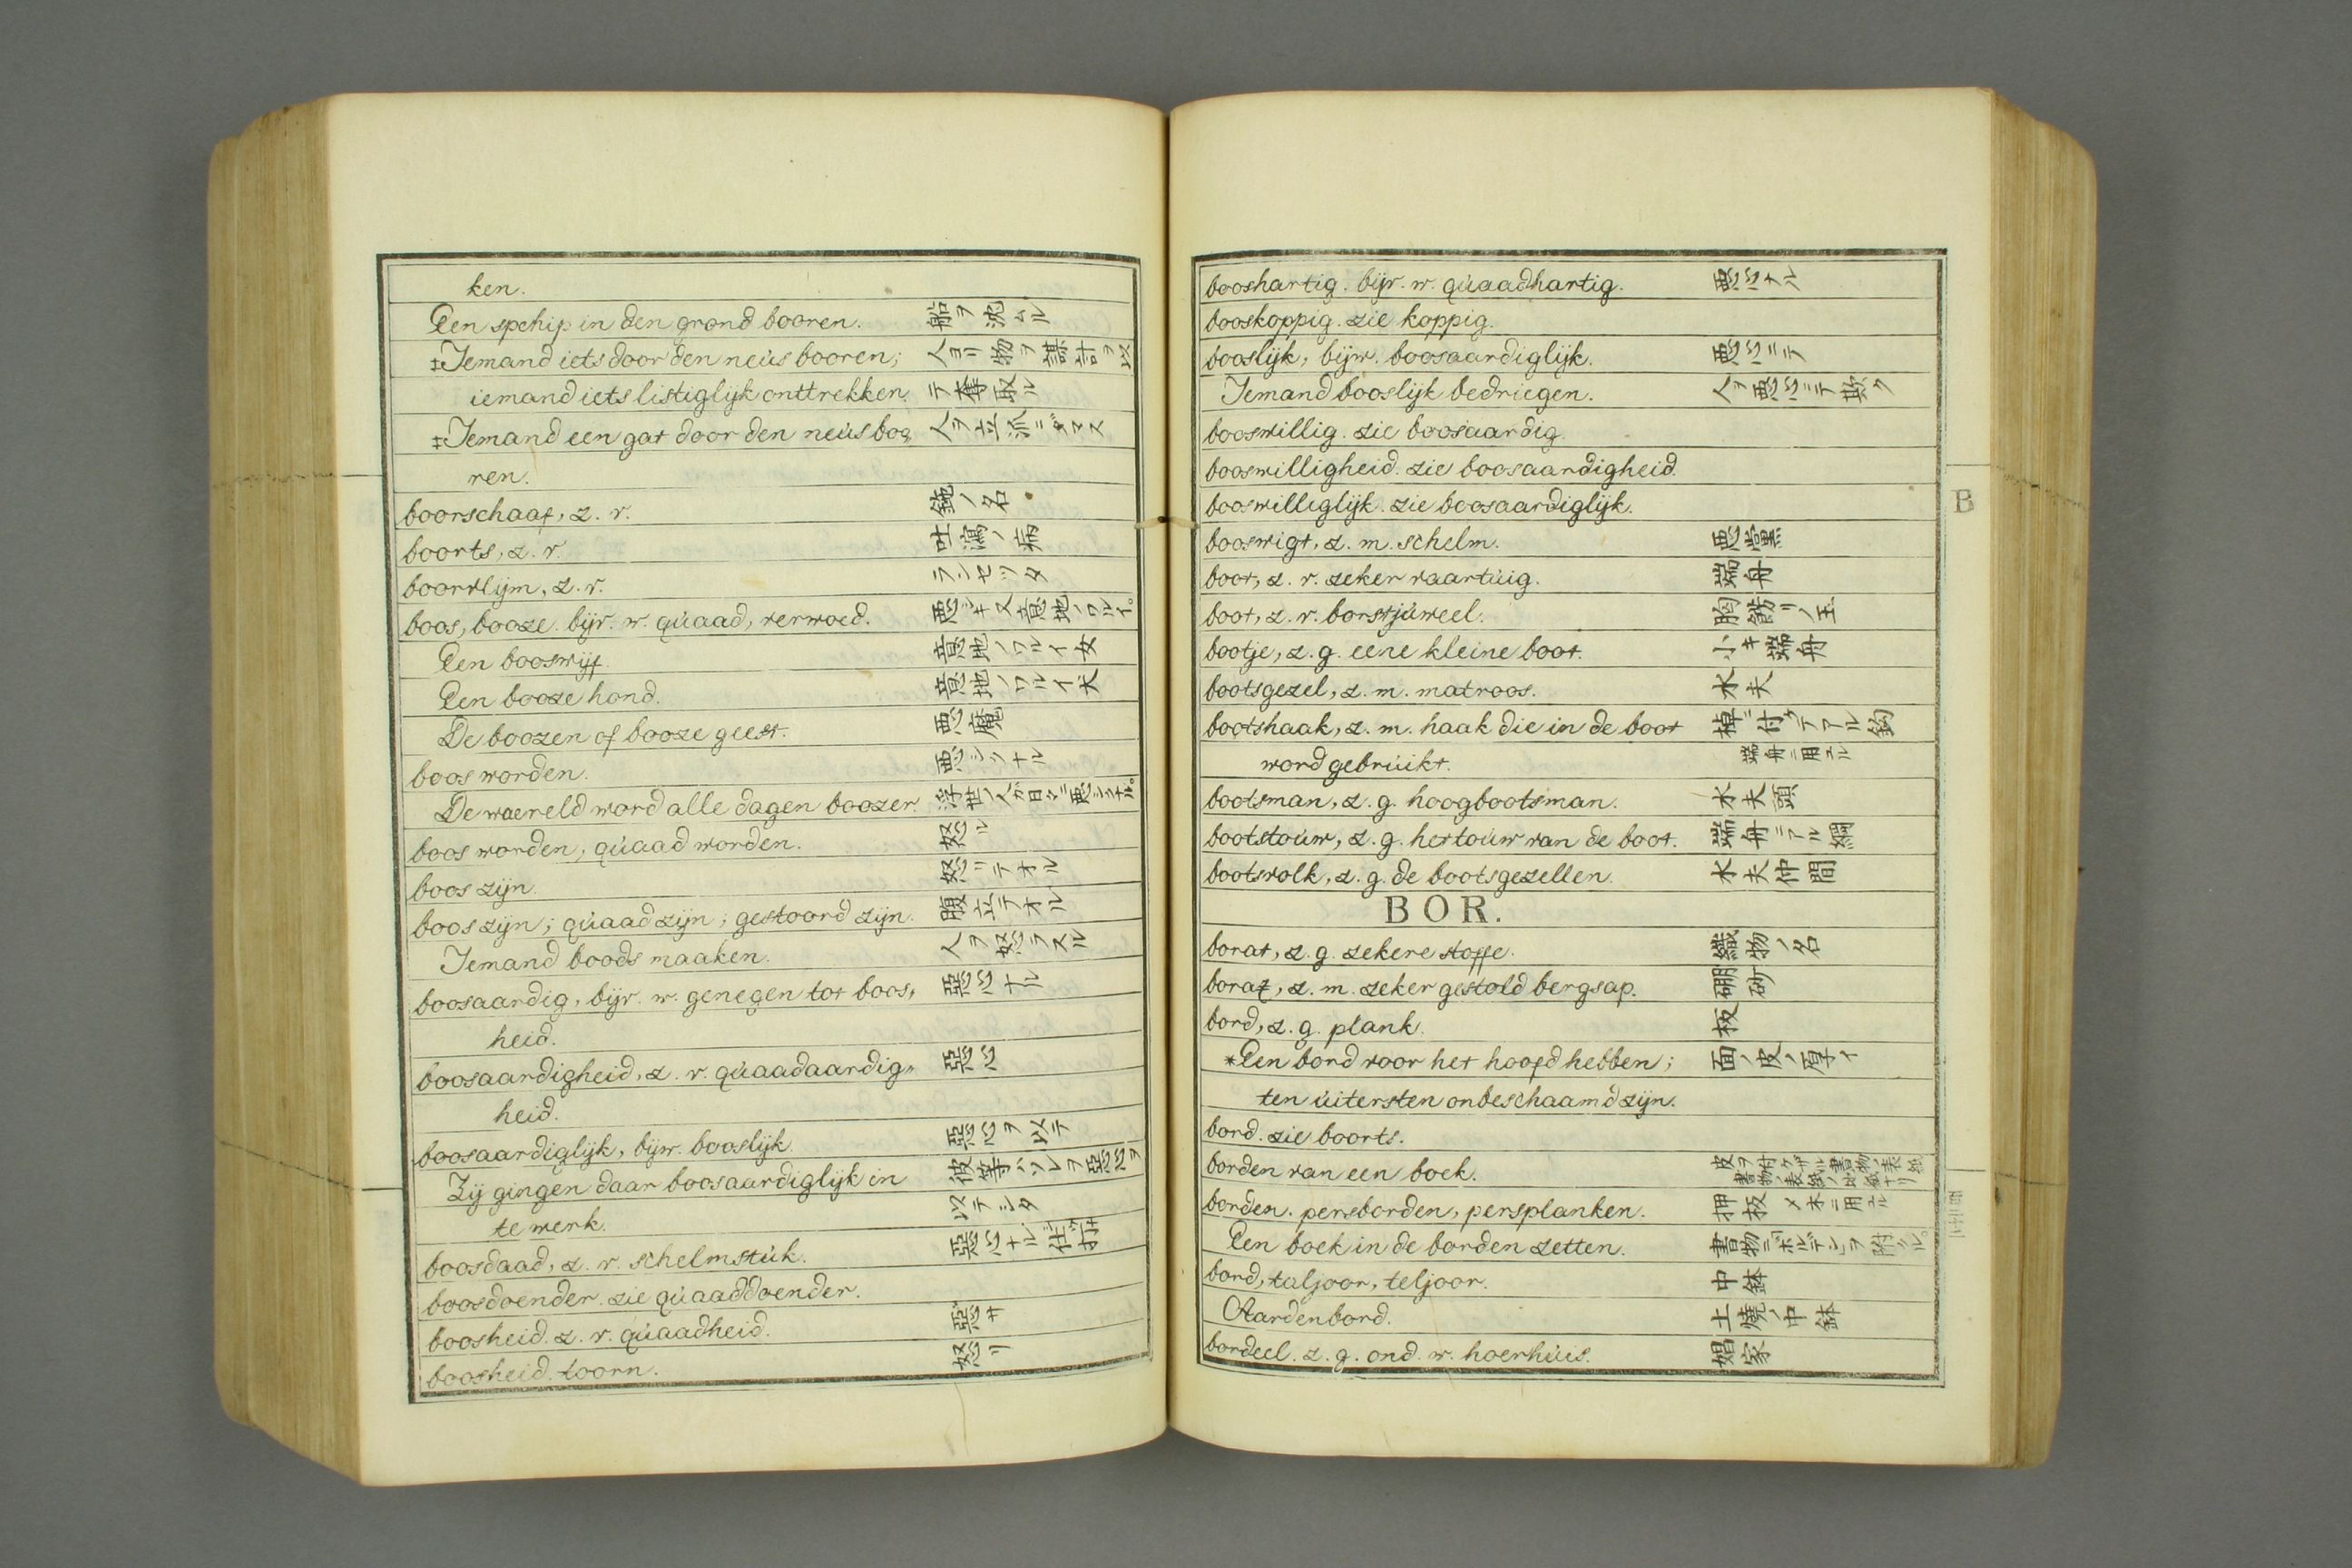 ken.
Een spchip in den grond booren. 船ヲ沈ムル
‡Iemand iets door den neus booren; 人ヨリ物ヲ謀計ヲ以
iemand iets listiglijk onttrekken. テ奪取ル
‡Iemand een gat door den neus boo, 人ヲ立派ニダマス
ren.
boorschaaf, z. v. 鉋ノ名
boorts, z. v. 吐瀉ノ病
boorvlijm, z. v. ランセツタ
boos, booze. bijv. w. quaad, verwoed. 悪シキ又意地ノワルイ。
Een booswijf. 意地ノワルイ女
Een booze hond. 意地ノワルイ犬
De boozen of booze geest. 悪魔
boos worden. 悪シクナル
De waereld word alle dagen boozer. 浮世ノ人ガ日々ニ悪シクナル。
boos worden, quaad worden. 怒ル
boos zijn. 怒リテオル
boos zijn; quaad zijn; gestoord zijn. 腹立テオル
Iemand boods maaken. 人ヲ怒ラスル
boosaardig, bijv. w. genegen tot boos, 惡心ナル
heid.
boosaardigheid, z. v. quaadaardig, 惡心
heid.
boosaardiglijk, bijw. booslijk. 惡心ヲ以テ
Zij gingen daar boosaardiglijk in 彼等ハソレヲ惡心ヲ
te werk. 以テシタ
boosdaad, z. v. schelmstuk. 惡心ナル仕打
boosdoender. zie quaaddoender.
boosheid. z. v. quaadheid. 惡サ
boosheid. toorn. 怒リ
booshartig. bijv. w. quaadhartig. 悪心ナル
booskoppig. zie koppig.
booslijk, bijw. boosaardiglijk. 悪心ニテ
Iemand booslijk bedriegen. 人ヲ悪心ニテ欺ク
booswillig. zie boosaardig.
booswilligheid. zie boosaardigheid.
booswilliglijk. zie boosaardiglijk.
booswigt, z. m. schelm. 悪黨
boot, z. v. zeker vaartuig. 端舟
boot, z. v. borstjuweel. 胸餝リノ玉
bootje, z. g. eene kleine boot. 小キ端舟
bootsgezel, z. m. matroos. 水夫
bootshaak, z. m. haak die in de boot 棹ニ付ケテアル鈎
word gebruikt. 端舟ニ用ユル
bootsman, z. g. hoogbootsman. 水夫頭
bootstouw, z. g. het touw van de boot. 端舟ニアル綱
bootsvolk, z. g. de bootsgezellen. 水夫仲間
BOR.
borat, z. g. zekere stoffe. 織物ノ名
boraz, z. m. zeker gestold bergsap. 硼砂
bord, z. g. plank. 板
*Een bord voor het hoofd hebben; 面ノ皮ノ厚イ
ten uitersten onbeschaamd zijn.
bord. zie boorts.
borden van een boek. 皮ヲ付ケザル書物ノ表紙
borden. persborden, persplanken. 押板
Een boek in de borden zetten.
bord, taljoor, teljoor. 中鉢
Aardenbord. 土燒ノ中鉢
bordeel. z. g. ond. w. hoerhuis. 娼家
B